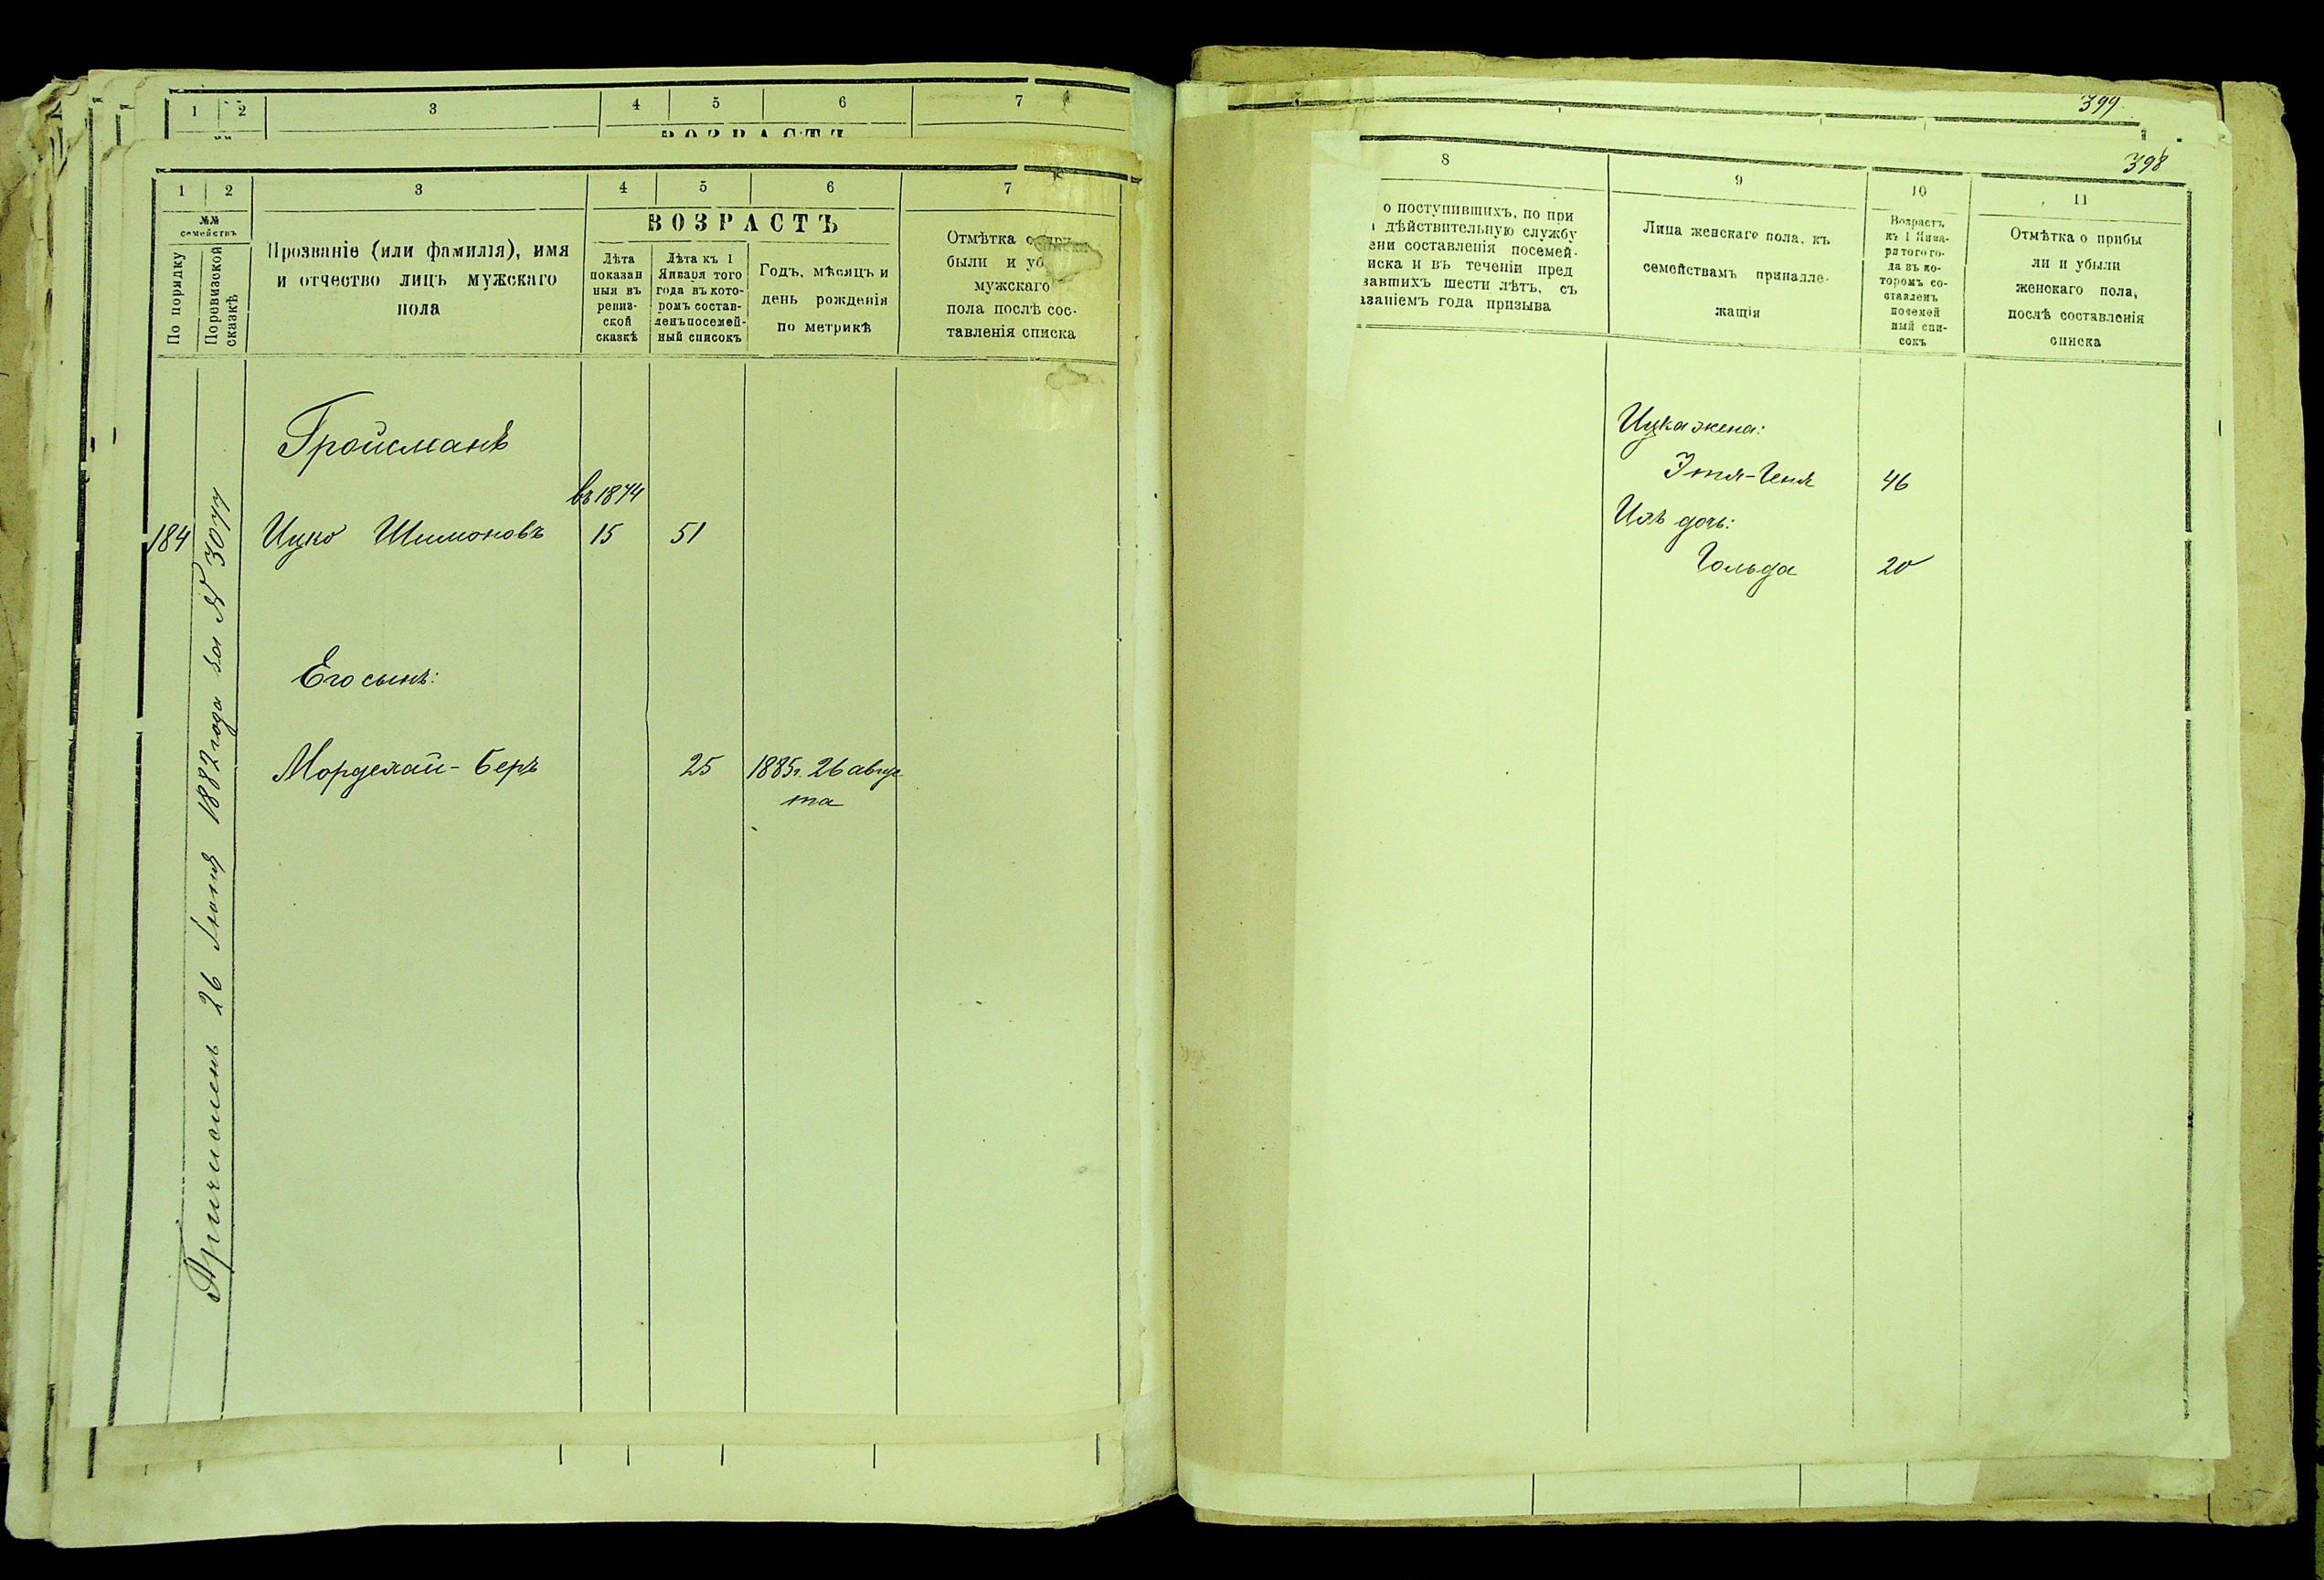 1 2 3 4 5 6 7
ВОЗРАСТЪ
1 2 3 4 5 6 7
№№ семействъ
По порядку
По ревизской сказкѣ
Прозваніе (или фамилія), имя
и отчество лицъ мужскаго
пола
ВОЗРАСТЪ
Лѣта
показан
ныя въ
ревиз-
ской
сказкѣ
Лѣта къ 1
Января того
года въ кото-
ромъ состав-
ленъ посемей-
ный списокъ
Годъ, мѣсяцъ и
день рожденія
по метрикѣ
Отмѣтка о
были и уб
мужскаго
пола послѣ сос-
тавленія списка
Гройсманъ
въ 1874
184 Ицко Шимоновъ 15 51
Его сынъ:
Мордехай-Беръ 25 1885г. 26 авгус
та
Причисленъ 26 Іюня 1882 года за № 3077
399
398
8 9 10 11
о поступившихъ, по при
дѣйствительную службу
ени составленія посемей-
иска и въ теченіи пред
вавшихъ шести лѣтъ, съ
азаніемъ года призыва
Лица женскаго пола, къ
семействамъ приналле-
жащія
Возрастъ
къ 1 Янва-
ря того го-
да въ ко-
торомъ со-
ставленъ
посемей
ный спи-
сокъ
Отмѣтка о прибы
ли и убыли
женскаго пола,
послѣ составленія
списка
Ицка жена:
Этля-Геня 46
Ихъ дочь:
Гольда 20